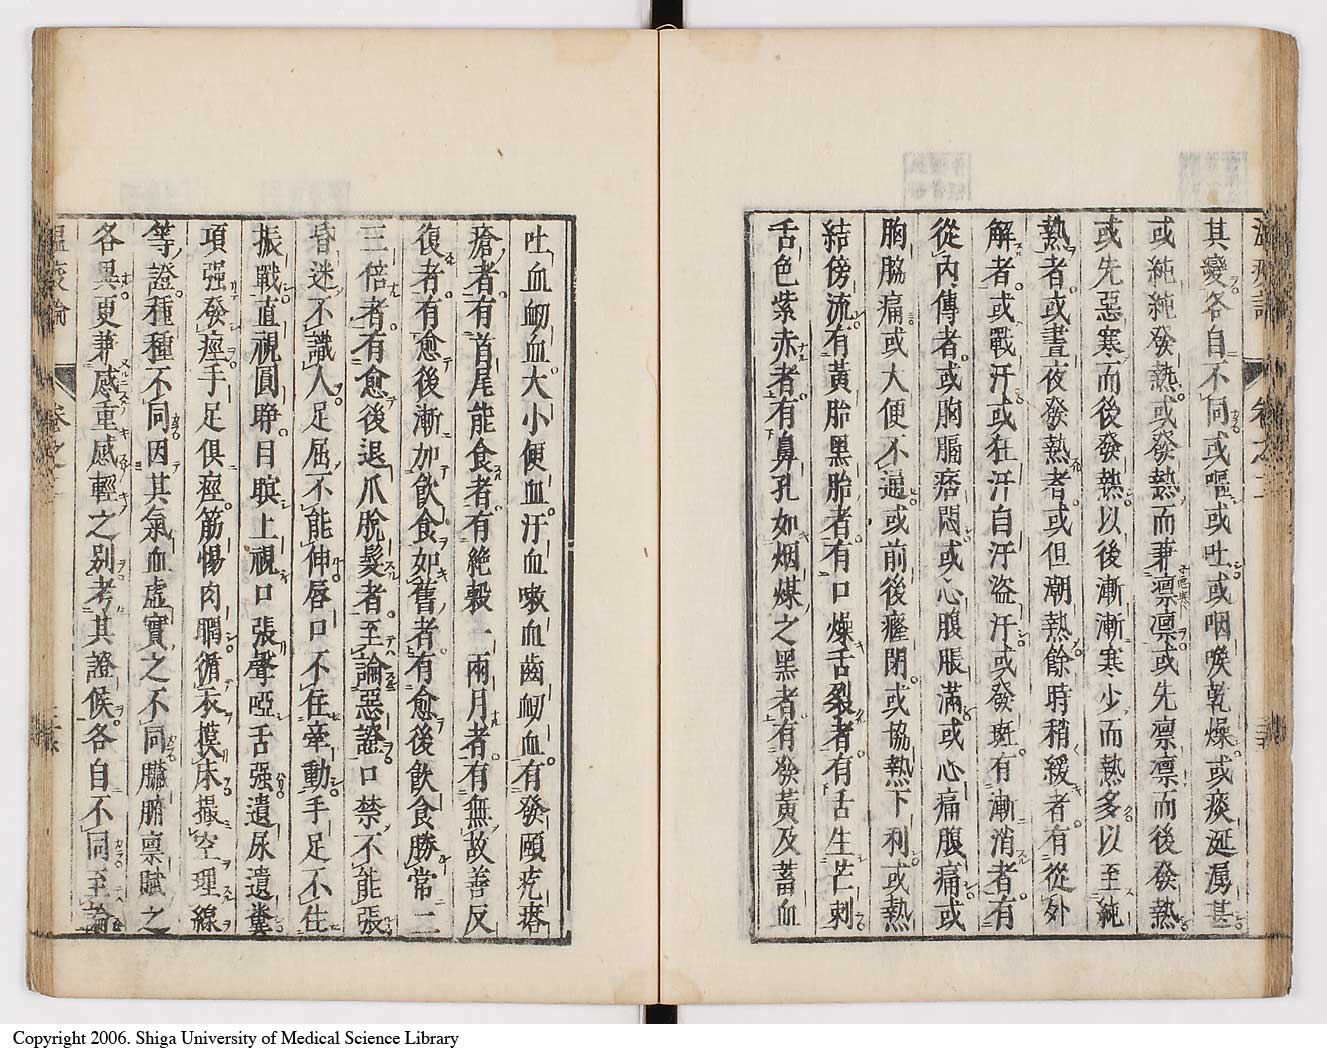 其變各自不同或嘔或吐或咽喉乾燥或痰涎湧甚
或純純發熱或發熱而兼凛凛或先凛凛而後發熱
或先惡寒而後發熱以後漸漸寒少而熱多以至純
熱者或晝夜發熱者或但潮熱餘時稍緩者有從外
解者或戰汗或狂汗自汗盗汗或發斑有漸消者有
從内傳者或胸膈痞悶或心腹脹滿或心痛腹痛或
胸脇痛或大便不通或前後癃閉或協熱下利或熱
結傍流有黃胎黑胎者有口燥舌裂者有舌生芒刺
舌色紫赤者有鼻孔如烟煤之黑者有發黃及蓄血
吐血衂血大小便血汗血嗽血齒衂血有發頤疙瘩
瘡者有首尾能食者有絶穀一兩月者有無故善反
復者有愈後漸加飲食如舊者有愈後飲食勝常二
三倍者有愈後退爪脫髮者至論惡證口禁不能張
昏迷不識人足屈不能伸唇口不住牽動手足不住
振戰直視圓睁目瞚上視口張聲啞舌强遺尿遺糞
項强發痙手足俱痙筋惕肉瞤循衣摸床撮空理線
等證種種不同因其氣血虛實之不同臟腑禀賦之
各異更兼感重感輕之别考其證候各自不同至論
Copyright 2006. Shiga University of Medical Science Library